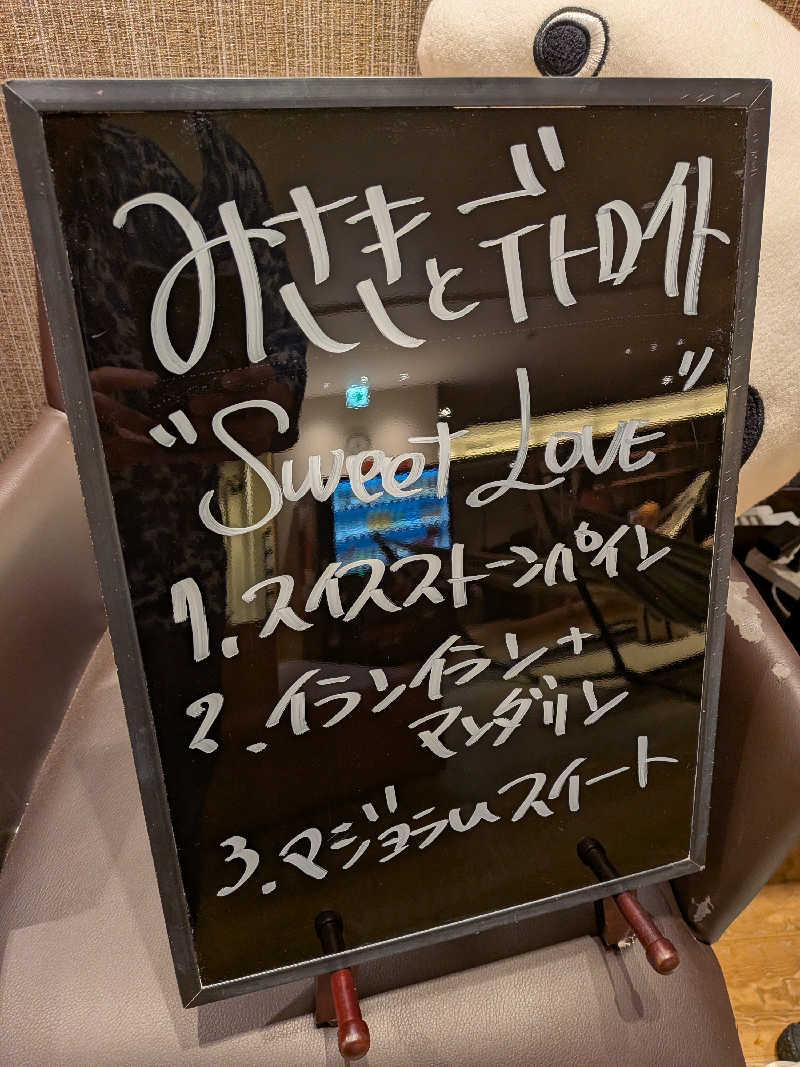 みさきとデトロイト
"Sweet Love"
1. スイスストーンパイン
2. イランイラン+
マンダリン
3. マジョラムスイート